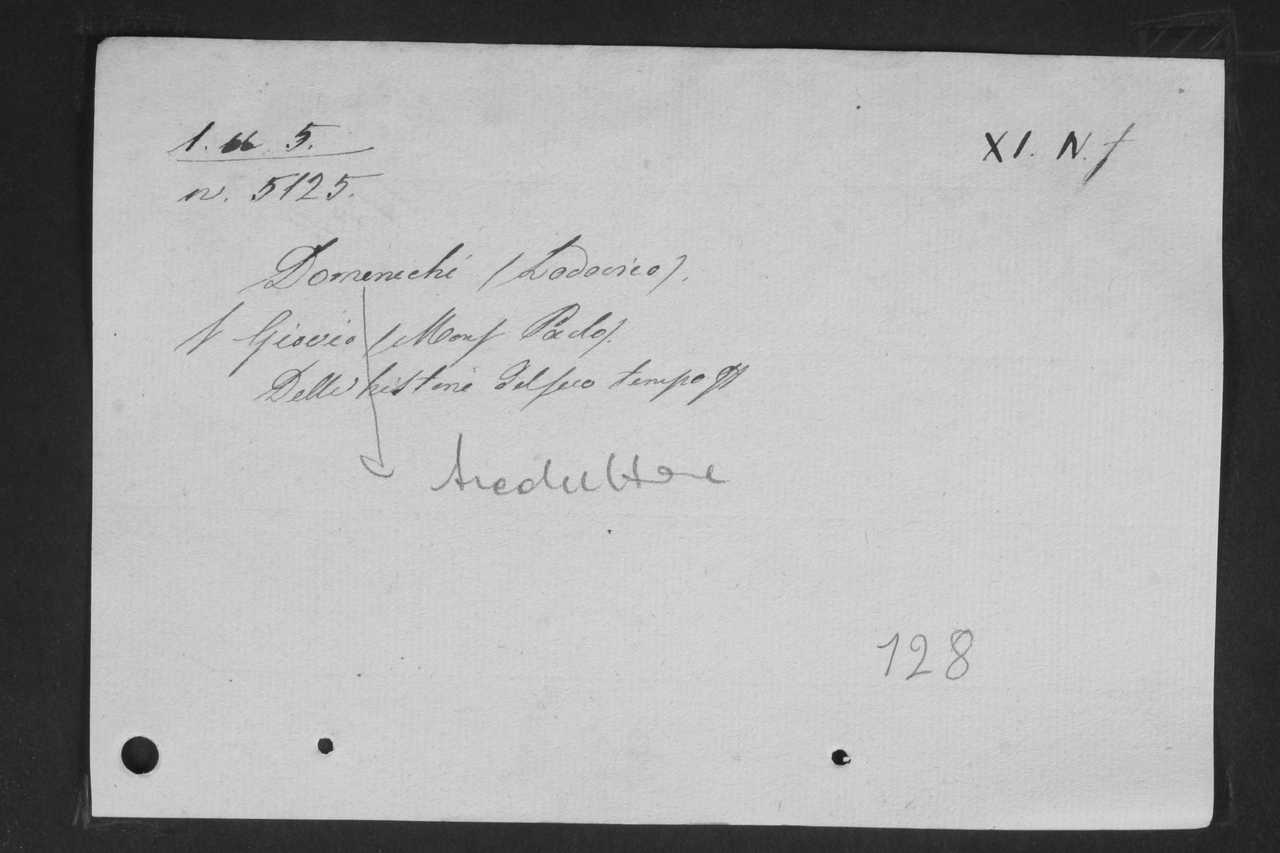 1. 66 5.
XI. N. f
n. 5125.
Domenichi (Lodovico).
V Giovio (Mons Paolo).
Delle historie del suo tempo
traduttore
128